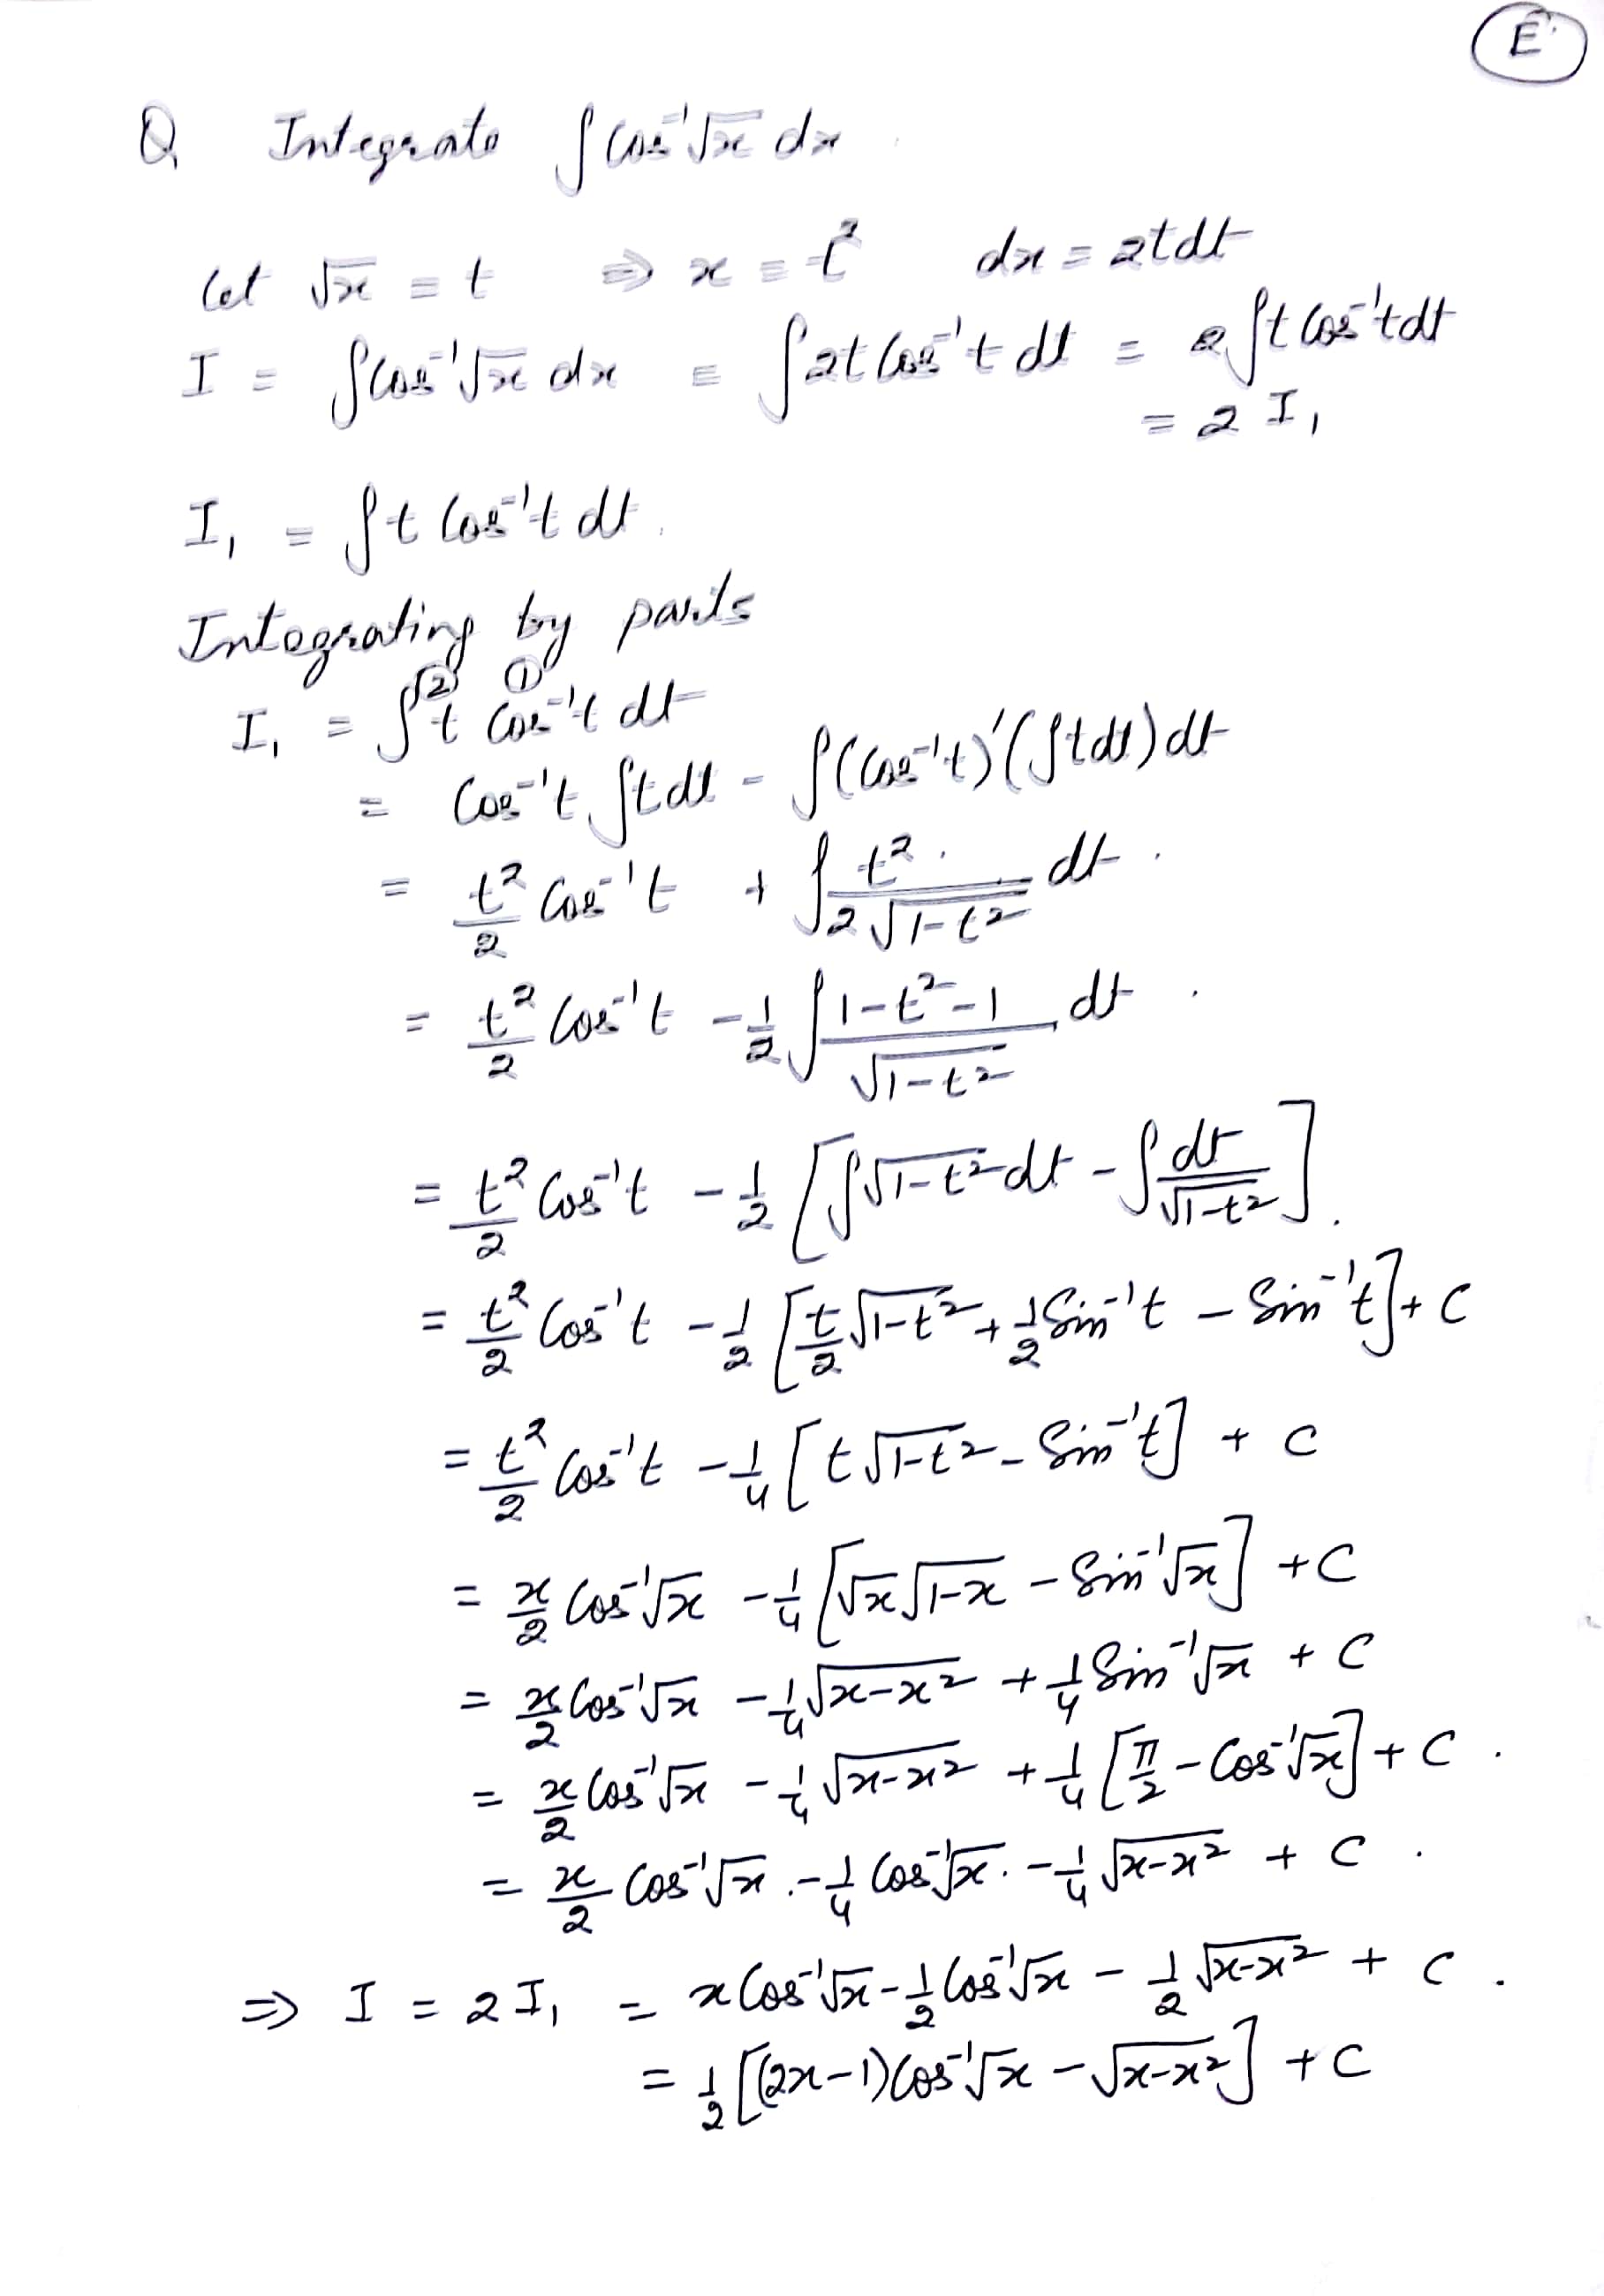 E
Q Integrate ∫ Cos⁻¹√x dx
Let √x = t ⇒ x = t² dx = 2tdt
I = ∫Cos⁻¹√x dx = ∫2t Cos⁻¹t dt = 2∫t Cos⁻¹t dt
= 2 I₁
I₁ = ∫t Cos⁻¹t dt.
Integrating by parts
(2) (1)
I₁ = ∫t Cos⁻¹t dt
= Cos⁻¹t ∫t dt - ∫(Cos⁻¹t)′(∫t dt) dt
= t²/2 Cos⁻¹t + ∫ t²/(2√(1-t²)) dt.
= t²/2 Cos⁻¹t - 1/2 ∫ (1-t²-1)/√(1-t²) dt.
= t²/2 Cos⁻¹t - 1/2 [∫√(1-t²) dt - ∫ dt/√(1-t²)].
= t²/2 Cos⁻¹t - 1/2 [t/2 √(1-t²) + 1/2 Sin⁻¹t - Sin⁻¹t] + C
= t²/2 Cos⁻¹t - 1/4 [t√(1-t²) - Sin⁻¹t] + C
= x/2 Cos⁻¹√x - 1/4 [√x √(1-x) - Sin⁻¹√x] + C
= x/2 Cos⁻¹√x - 1/4 √(x-x²) + 1/4 Sin⁻¹√x + C
= x/2 Cos⁻¹√x - 1/4 √(x-x²) + 1/4 [π/2 - Cos⁻¹√x] + C.
= x/2 Cos⁻¹√x - 1/4 Cos⁻¹√x - 1/4 √(x-x²) + C.
⇒ I = 2I₁ = x Cos⁻¹√x - 1/2 Cos⁻¹√x - 1/2 √(x-x²) + C.
= 1/2 [(2x-1) Cos⁻¹√x - √(x-x²)] + C